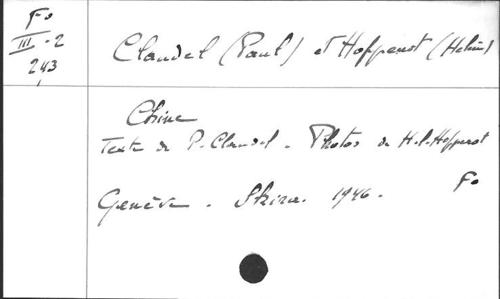 Fo
III-2
243
Claudel (Paul) et Hoppenot (Hélène)
Chine
Texte de P. Claudel. Photos de H. Hoppenot
Genève. Skira. 1946.
Fo